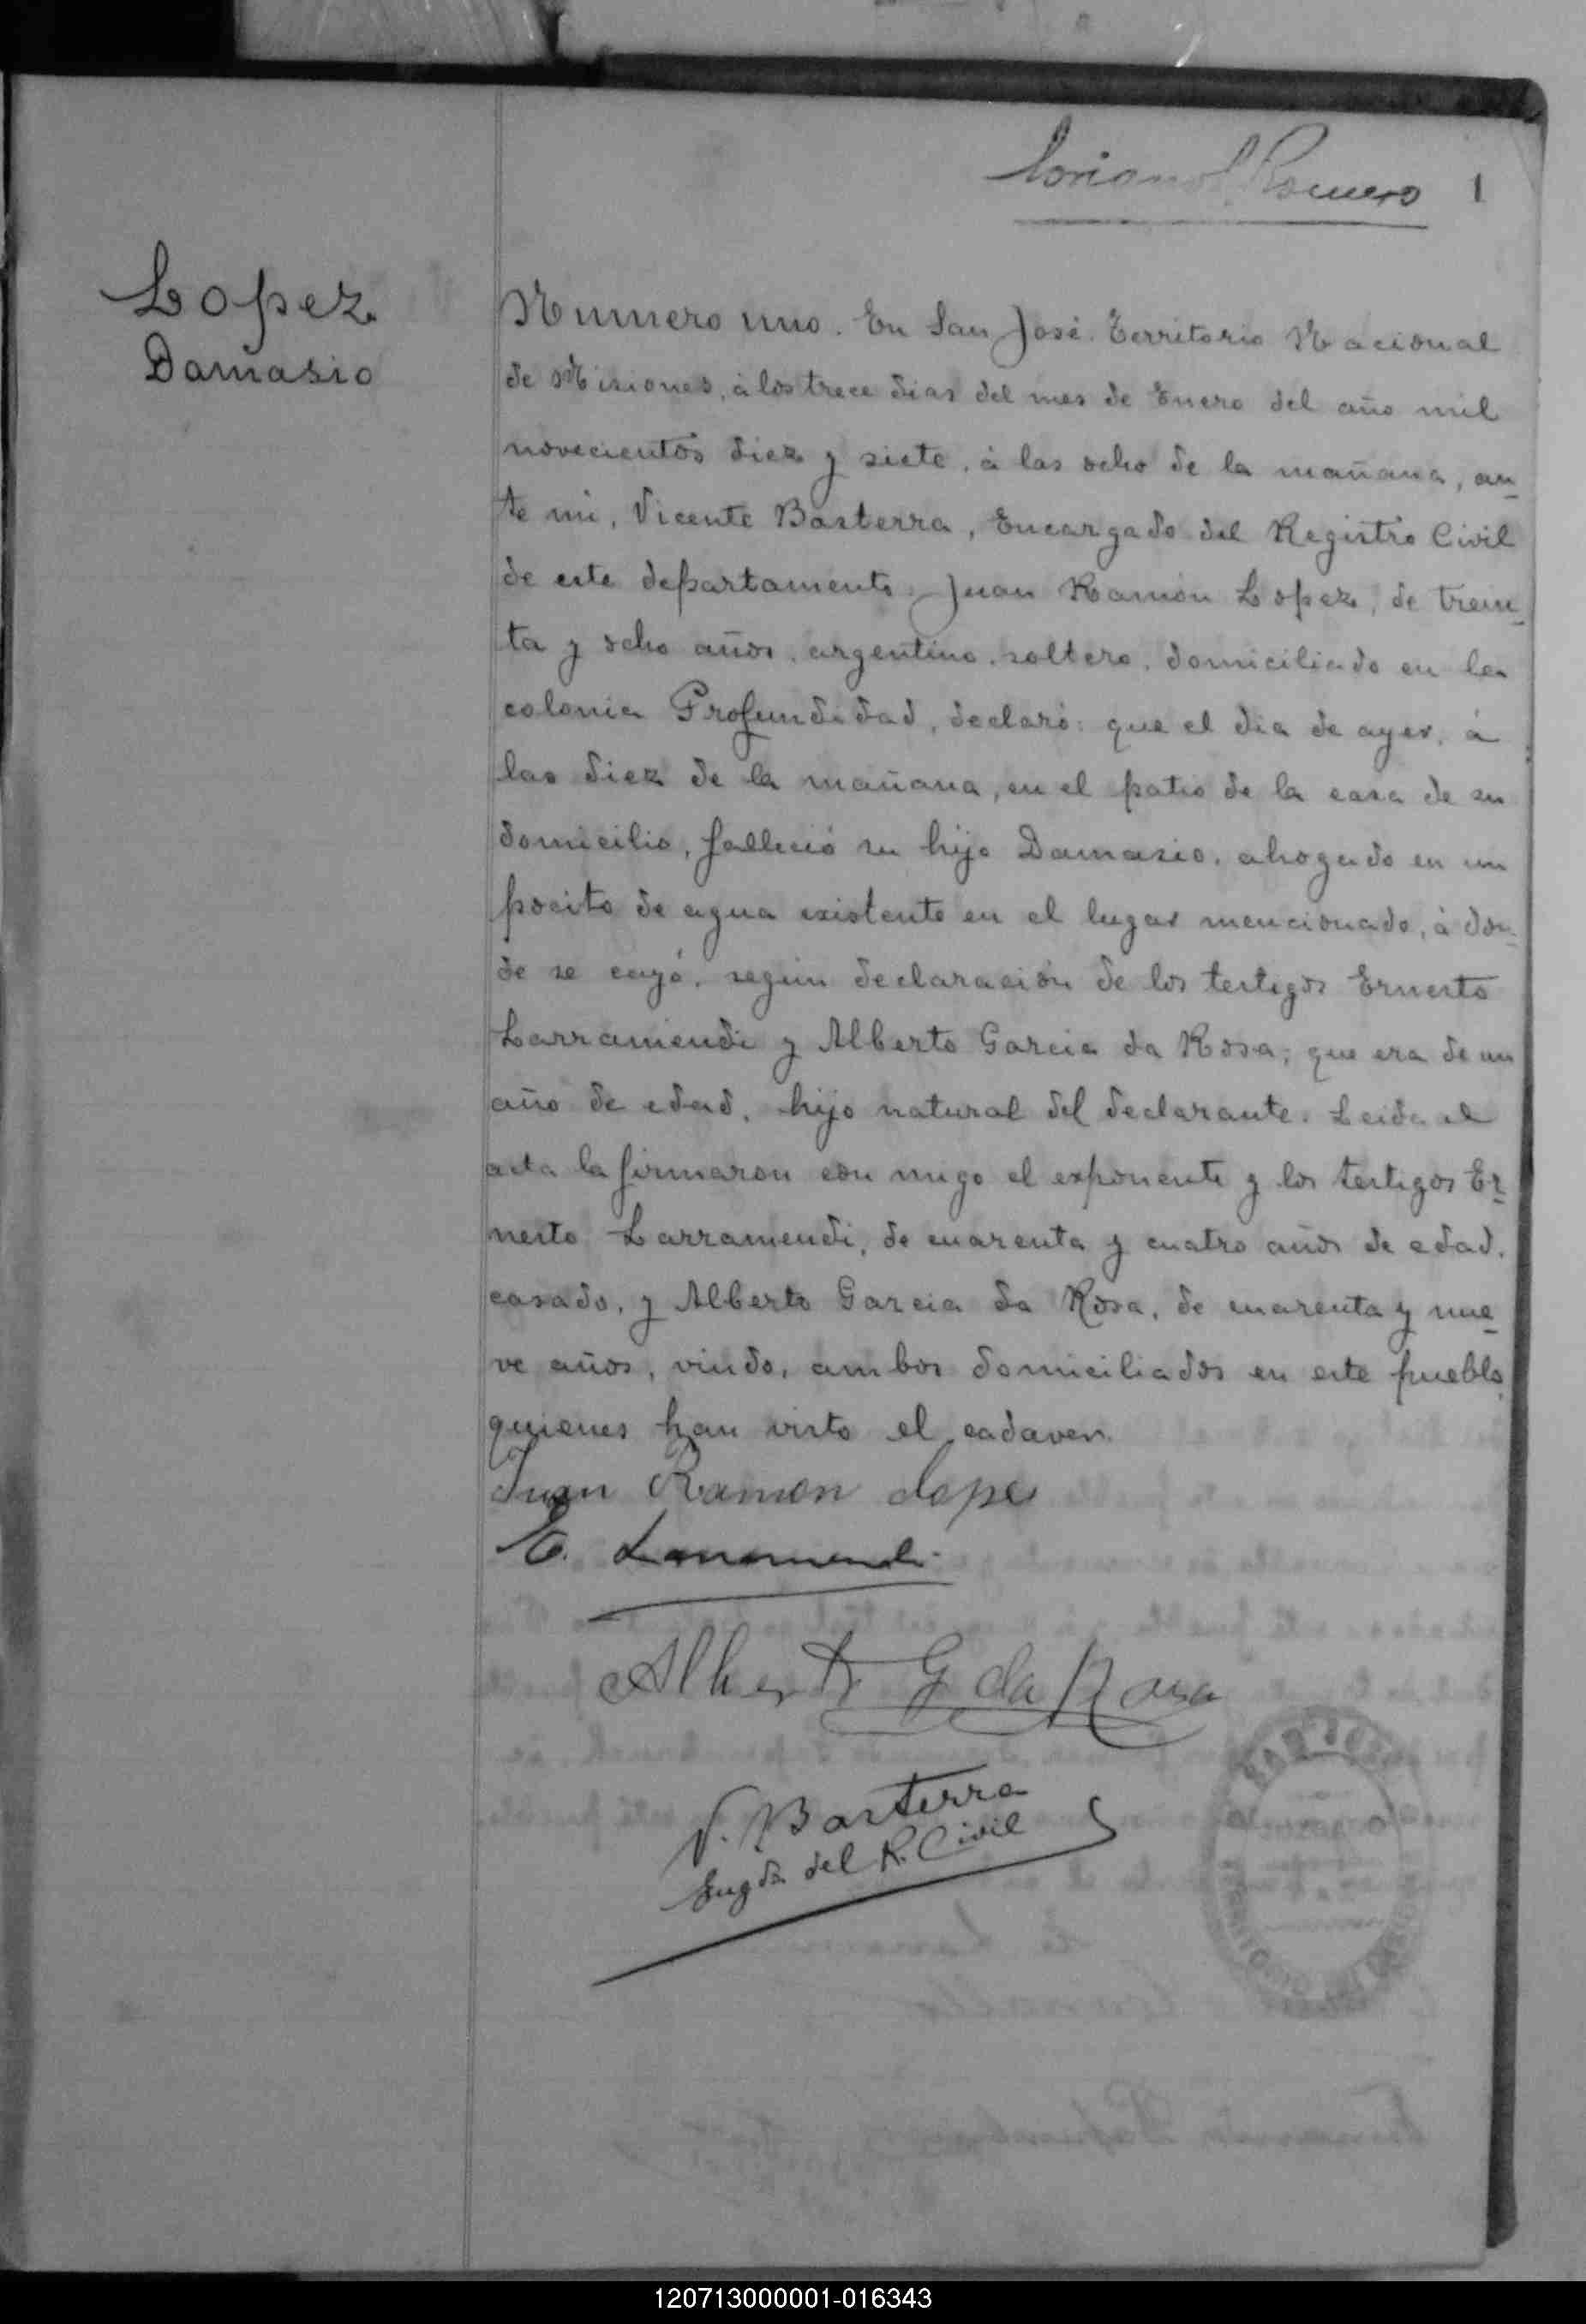 Romero 1
Lopez
Damasio
Numero uno. En San José. Territorio Nacional
de Misiones, á los trece dias del mes de Enero del año mil
novecientos diez y siete, á las ocho de la mañana, an_
te mi, Vicente Basterra, Encargado del Registro Civil
de este departamento. Juan Ramón Lopez, de trein_
ta y ocho años, argentino, soltero, domiciliado en la
colonia Profundidad, declaró: que el dia de ayer, á
las diez de la mañana, en el patio de la casa de su
domicilio, falleció su hijo Damasio, ahogado en un
pocito de agua existente en el lugar mencionado, á don_
de se cayó, según declaración de los testigos Ernesto
Larramendi y Alberto Garcia da Rosa; que era de un
año de edad, hijo natural del declarante. Leida el
acta la firmaron con migo el exponente y los testigos Er_
nesto Larramendi, de cuarenta y cuatro años de edad,
casado, y Alberto Garcia da Rosa, de cuarenta y nue_
ve años, viudo, ambos domiciliados en este pueblo,
quienes han visto el cadaver.
Juan Ramon Lopes
E. Larramendi
Alberto G da Rosa
V. Basterra
Engdo. del R. Civil
SAN JOSÉ
120713000001-016343